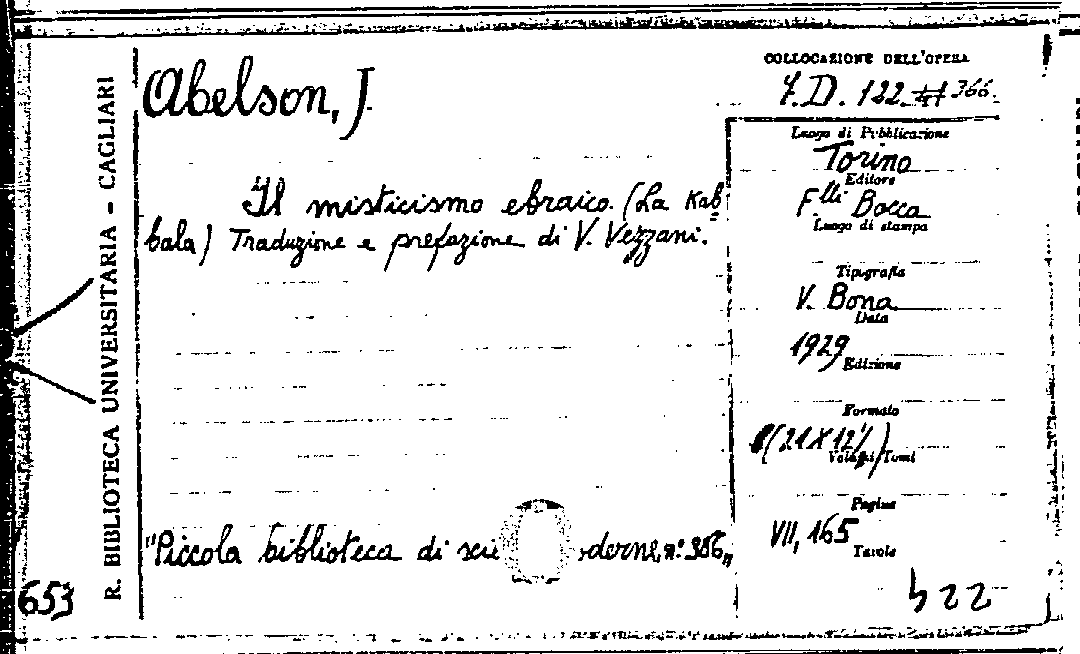 R. BIBLIOTECA UNIVERSITARIA - CAGLIARI
653
Abelson, J.
Il misticismo ebraico. (La Kab"
bala) Traduzione e prefazione di V. Vezzani.
"Piccola biblioteca di scie oderne, n.° 366„
COLLOCAZIONE DELL'OPERA
7.D. 122 # 366.
Luogo di Pubblicazione
Torino
Editore
F.lli Bocca
Luogo di stampa
Tipografia
V. Bona
Data
1929
Edizione
Formato
8(21X12½)
Volumi/Tomi
Pagine
VII, 165
Tavole
422